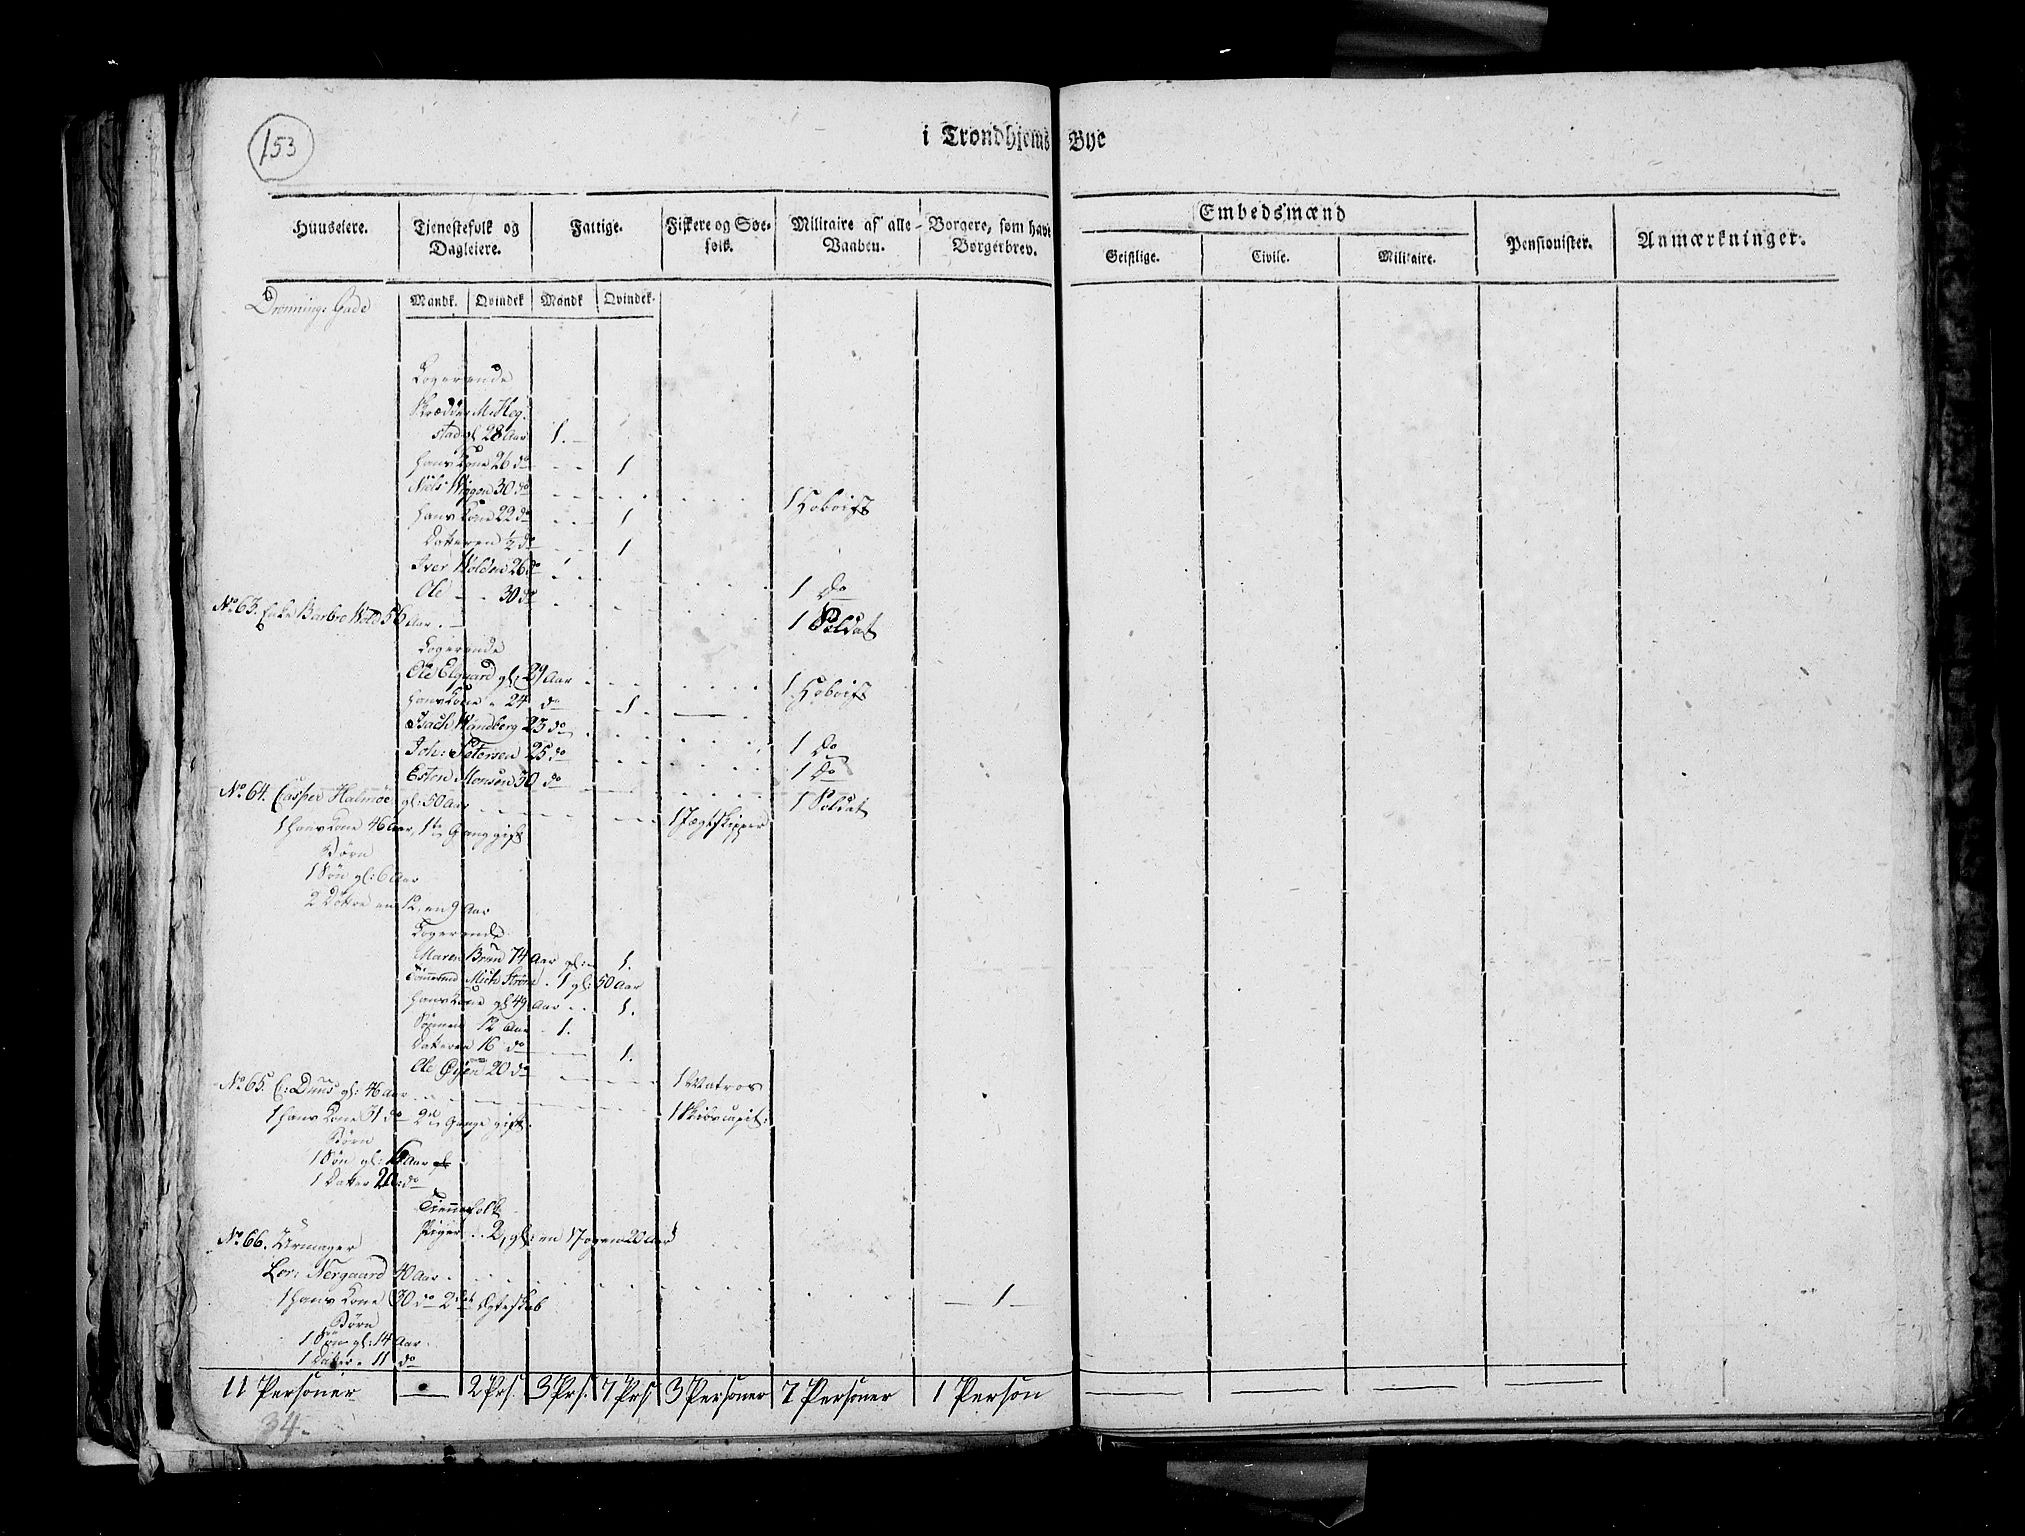 153
i Trondhjems Bye
Huuseiere. Tjenestefolk og Dagleiere. Fattige. Fiskere og Søefolk. Militaire af alle Vaaben. Borgere, som have Borgerbrev. Embedsmænd Pensionister. Anmærkninger.
Geistlige. Civile. Militaire.
Mandk. Qvindek Mandk Qvindek.
Dronnings Gade
Logerende
Skrædder M. Heg-
stad gl 28 Aar 1.
Hans Kone 26 do 1
Niels Wiggen 30 do 1 Hoboist
Hans Kone 22 do 1
Datteren ½ do 1
Iver Wolden 26 do 1 Do
Ole 30 do 1 Soldat
No. 63. Enke Barbro Wold 56 Aar.
Logerende
Ole Elgaard gl. 29 Aar 1 Hoboist
Hans Kone 24 do 1
Isach Wandberg 23 do 1 Do
Joh: Petersen 25 do 1 Do
Esten Monsen 30 do 1 Soldat
No. 64. Casper Halmøe gl: 50 Aar 1 Jægtskipper
1 Hans Kone 46 Aar, 1te Gang gift
Børn
1 Søn gl: 6 Aar
2 Døttre en 12, en 9 Aar
Logerende
Maren Brun 74 Aar gl: 1.
Tømmermd Mich Strøm 1 gl: 50 Aar
Hans Kone gl 49 Aar 1.
Sønnen 12 Aar 1.
Datteren 16 do 1.
Ole Øyen 20 do 1 Matros
No. 65. C: Duus gl: 46 Aar 1 Skibscapit:
1 Hans Kone 31 do 2d Gange gift.
Børn
1 Søn gl: 16 Aar
1 Datter 20 do
Tiennefolk
Piger 2, gl: en 17 og en 20 Aar
No. 66. Urmager
Lor: Nergaard 40 Aar 1
1 Hans Kone 30 do 2det Ægteskab
Børn
1 Søn gl: 14 Aar
1 Datter 11 do
11 Personer 2 Prs. 3 Prs. 7 Prs 3 Personer 7 Personer 1 Person
34